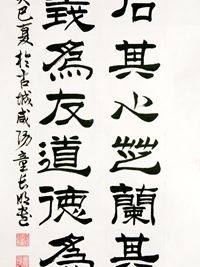 石其心芝蘭其
義為友道德為
癸巳夏於古城咸陽童長明書